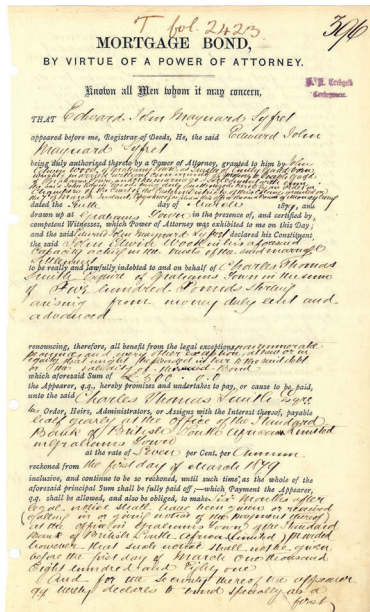 T fol. 2423
396
MORTGAGE BOND,
BY VIRTUE OF A POWER OF ATTORNEY.
Known all Men whom it may concern,
THAT Edward John Maynard Syfret
appeared before me, Registrar of Deeds, He, the said Edward John
Maynard Syfret
being duly authorized thereto by a Power of Attorney, granted to him by John
day of March 1879, and
drawn up at Grahams Town in the presence of, and certified by,
competent Witnesses, which Power of Attorney was exhibited to me on this Day;
and the said Edward John Maynard Syfret declared his Constituent,
the said John Edwin Wood in his aforesaid
capacity
to be really and lawfully indebted to and on behalf of Charles Thomas
Esquire of Grahams Town in the sum
of Five hundred Pounds sterling
arising from money duly lent and
advanced
renouncing, therefore, all benefit from the legal exceptions, non numeratæ
which aforesaid Sum of £500.0.0
the Appearer, q.q., hereby promises and undertakes to pay, or cause to be paid,
unto the said Charles Thomas
his Order, Heirs, Administrators, or Assigns with the Interest thereof, payable
half yearly at the office of the Standard
Bank of British South Africa Limited
in Grahams Town
at the rate of Seven per Cent. per Annum
reckoned from the first day of March 1879
inclusive, and continue to be so reckoned, until such time, as the whole of the
aforesaid principal Sum shall be fully paid off;—which Payment the Appearer,
q.q. shall be allowed, and also be obliged, to make Six months after
legal notice shall have been given or received
at the office in Grahams Town of the Standard
Bank of British South Africa Limited) provided
however that such notice shall not be given
before the first day of March One thousand
Eight hundred and Eighty one
And for the Security thereof the appearer
q.q. hereby declares to bind specially as a
first